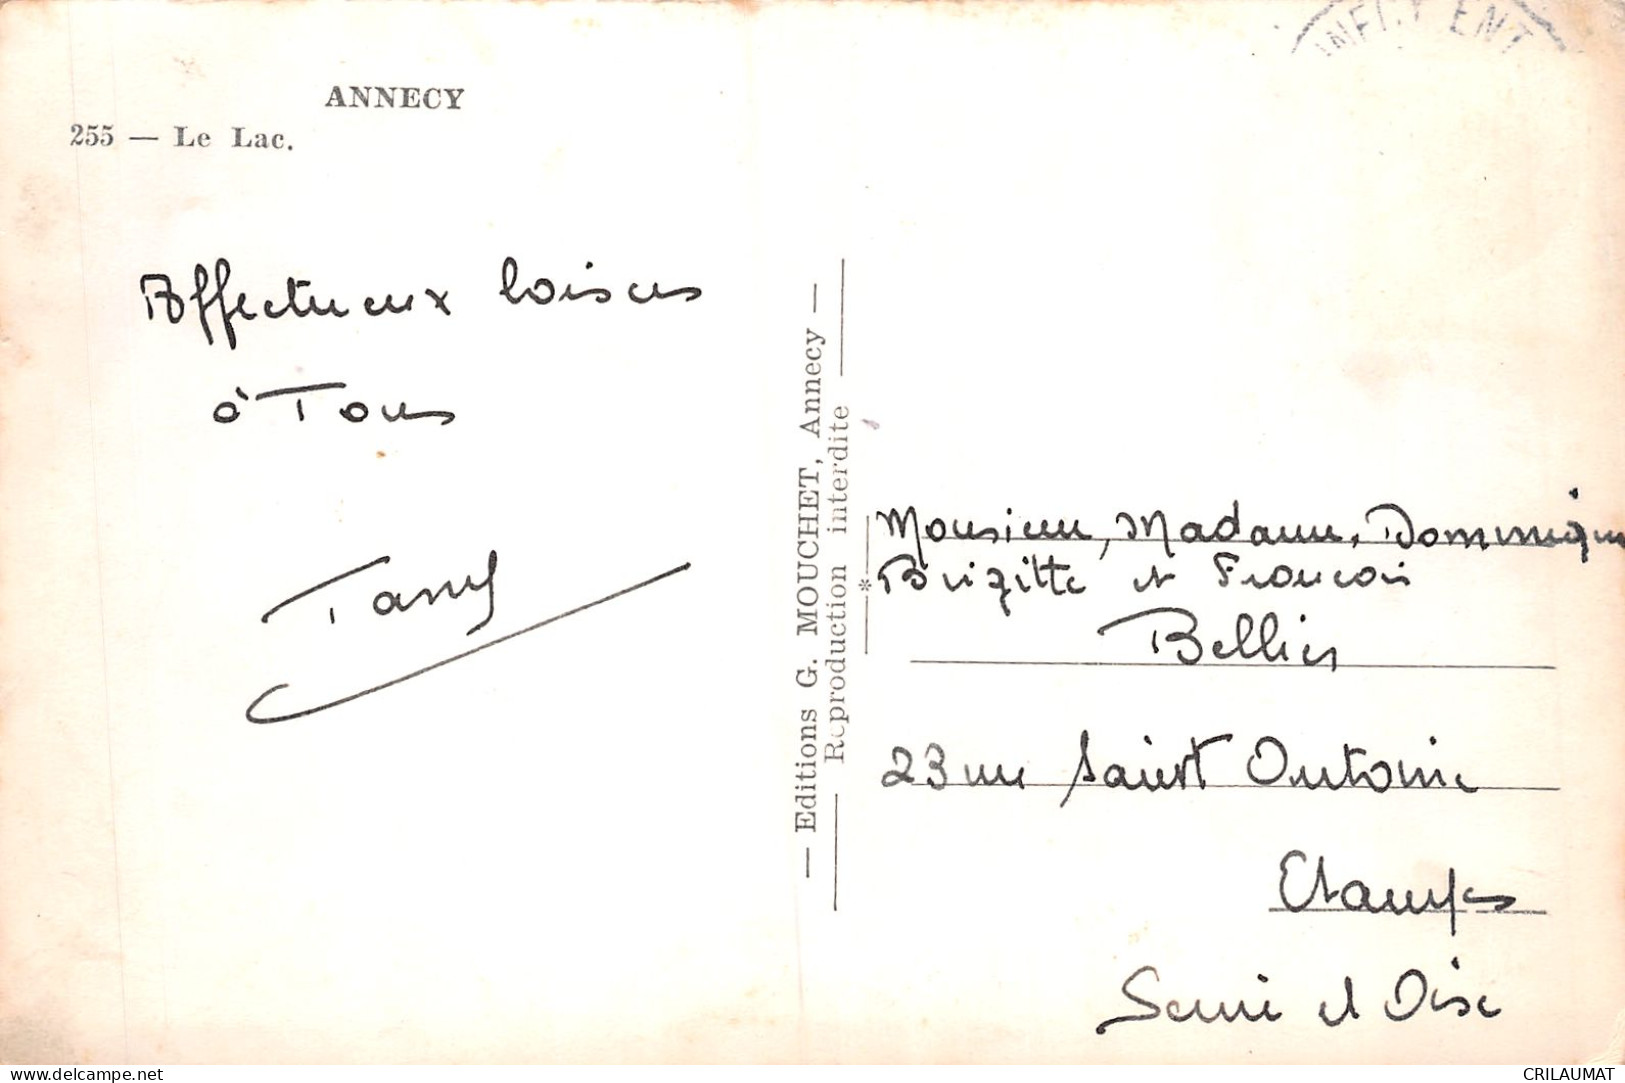 ANNECY
255 — Le Lac.
Affectueux baisers
à Tous
Tany
— Editions G. MOUCHET, Annecy —
Reproduction interdite
*
Monsieur, Madame, Dominique
Brigitte et Francois
Bellier
23 rue Saint Antoine
Etampes
Seine et Oise
www.delcampe.net
CRILAUMAT